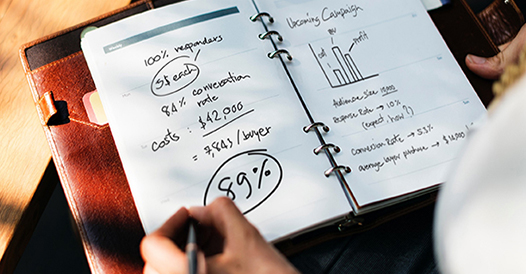 100% responders
5$ each
84% conversation
rate
costs: $42,000
= 7,843/buyer
89%
Upcoming Campaign
cost
profit
Audience size
Response Rate → 10%
(expect how?)
Conversion Rate →
average buyer purchase →